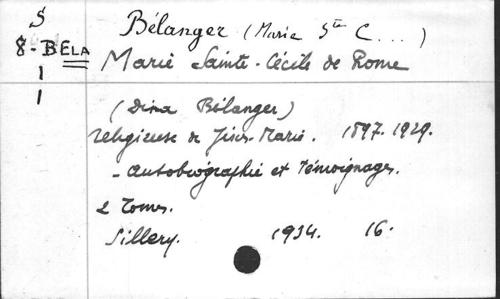 S
8-BELA
1
1
Bélanger (Marie Ste C...)
Marie Sainte-Cécile de Rome
(Dina Bélanger)
religieuse de Jésus-Marie. 1897-1929.
- Autobiographie et Témoignages.
2 Tomes.
Sillery. 1934. 16.